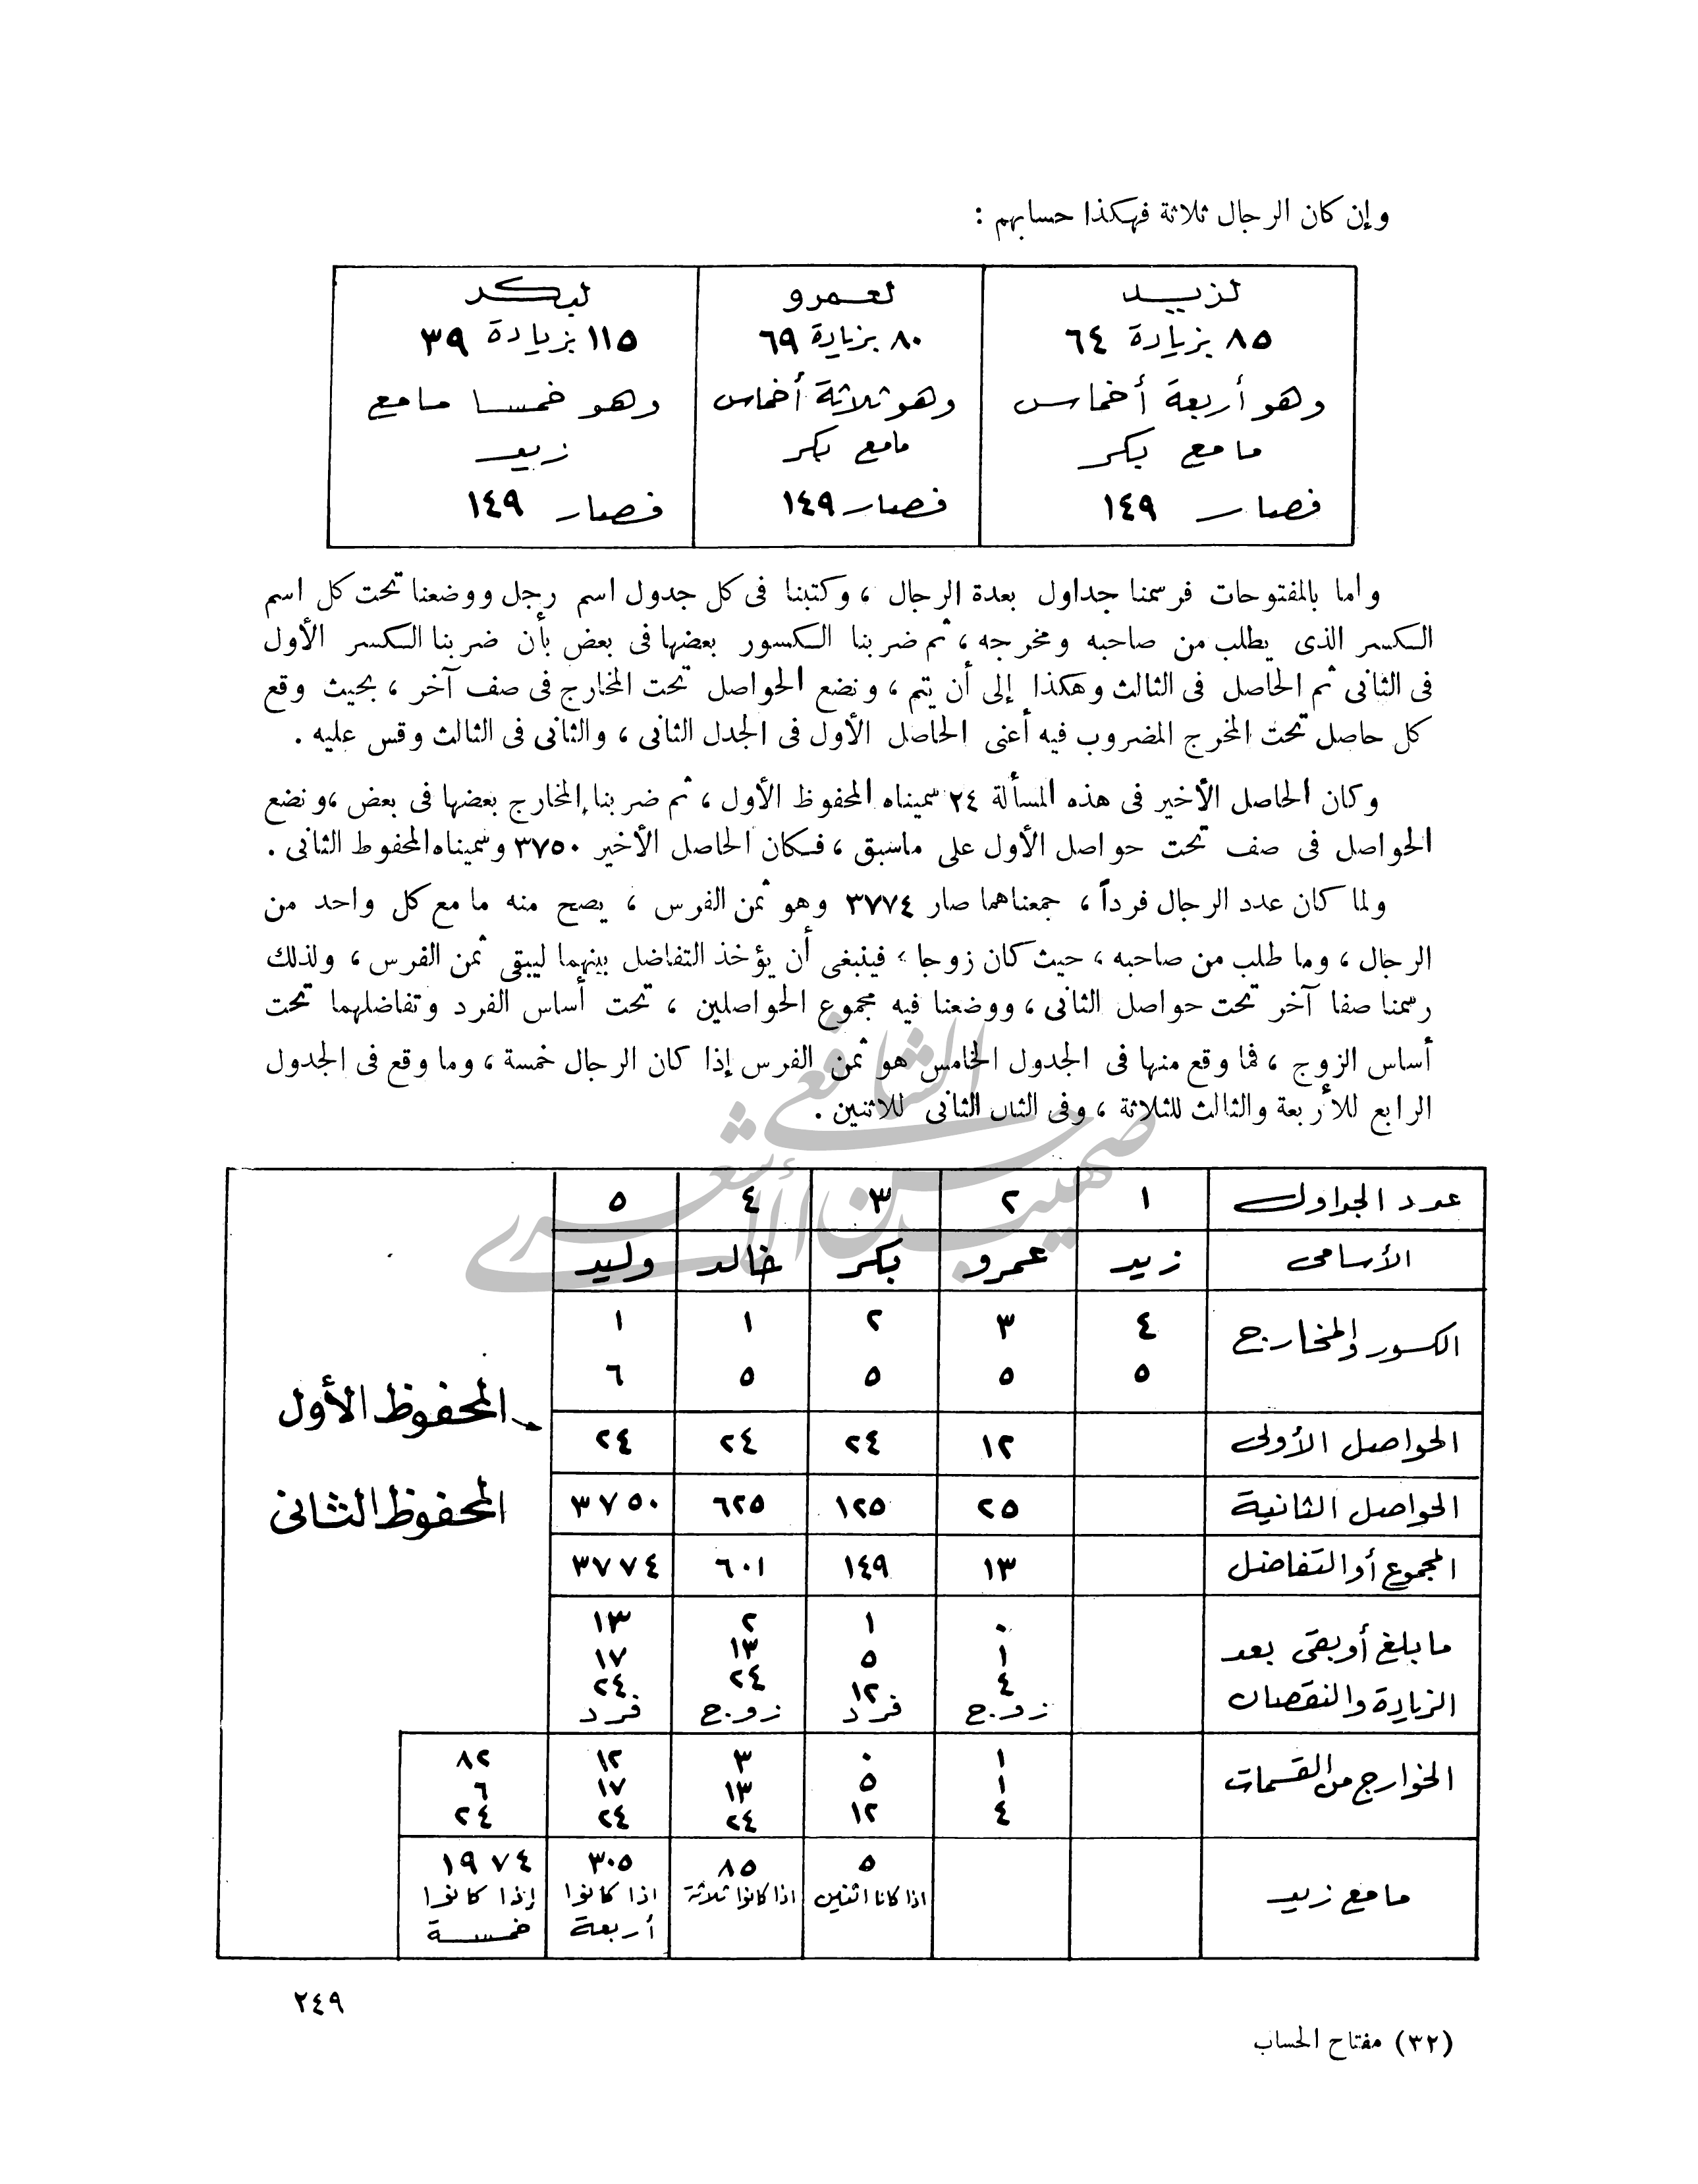 وإن كان الرجال ثلاثة فهكذا حسابهم :
لزيد	لعمرو	لبكر
٨٥ بزيادة ٦٤	٨٠ بزيادة ٦٩	١١٥ بزيادة ٣٩
وهو أربعة أخماس	وهو ثلاثة أخماس	وهو خمسا مامع
مامع بكر	مامع بكر	زيد
فصار ١٤٩	فصار ١٤٩	فصار ١٤٩
واما بالمفتوحات فرسمنا جداول بعدة الرجال ، وكتبنا فى كل جدول اسم رجل ووضعنا تحت كل اسم
الكسر الذى يطلب من صاحبه ومخرجه ، ثم ضربنا الكسور بعضها فى بعض بأن ضربنا الكسر الأول
فى الثانى ثم الحاصل فى الثالث وهكذا إلى أن يتم ، ونضع الحواصل تحت المخارج فى صف آخر ، بحيث وقع
كل حاصل تحت المخرج المضروب فيه أعنى الحاصل الأول فى الجدل الثانى ، والثانى فى الثالث وقس عليه .
وكان الحاصل الأخير فى هذه المسألة ٢٤ سميناه المحفوظ الأول ، ثم ضربنا المخارج بعضها فى بعض ، ونضع
الحواصل فى صف تحت حواصل الأول على ماسبق ، فكان الحاصل الأخير ٣٧٥٠ وسميناه المحفوط الثانى .
ولما كان عدد الرجال فرداً ، جمعناهما صار ٣٧٧٤ وهو ثمن الفرس ، يصح منه مامع كل واحد من
الرجال ، وما طلب من صاحبه ، حيث كان زوجا ، فينبغى أن يؤخذ التفاضل بينهما ليبقى ثمن الفرس ، ولذلك
رسمنا صفا آخر تحت حواصل الثانى ، ووضعنا فيه مجموع الحواصلين ، تحت أساس الفرد وتفاضلهما تحت
أساس الزوج ، فما وقع منها فى الجدول الخامس هو ثمن الفرس إذا كان الرجال خمسة ، وما وقع فى الجدول
الرابع للأربعة والثالث للثلاثة ، وفى الثانى للاثنين .
صهيب حسن الشافعي الأشعري
عدد الجداول	١	٢	٣	٤	٥
الأسامى	زيد	عمرو	بكر	خالد	وليد
الكسور والمخارج	٤	٣	٢	١	١
٥	٥	٥	٥	٦
الحواصل الأولى	١٢	٢٤	٢٤	٢٤	المحفوظ الأول
الحواصل الثانية	٢٥	١٢٥	٦٢٥	٣٧٥٠	المحفوظ الثانى
المجموع أو التفاضل	١٣	١٤٩	٦٠١	٣٧٧٤
مابلغ أو بقى بعد	٠	١	٢	١٣
١	٥	١٣	١٧
الزيادة والنقصان	٤	١٢	٢٤	٢٤
زوج	فرد	زوج	فرد
الخوارج من القسمات	١	٠	٣	١٢	٨٢
١	٥	١٣	١٧	٦
٤	١٢	٢٤	٢٤	٢٤
مامع زيد	٥	٨٥	٣٠٥	١٩٧٤
اذا كانا اثنين	اذا كانوا ثلاثة	اذا كانوا	إذا كانوا
أربعة	خمسة
٢٤٩
(٣٢) مفتاح الحساب